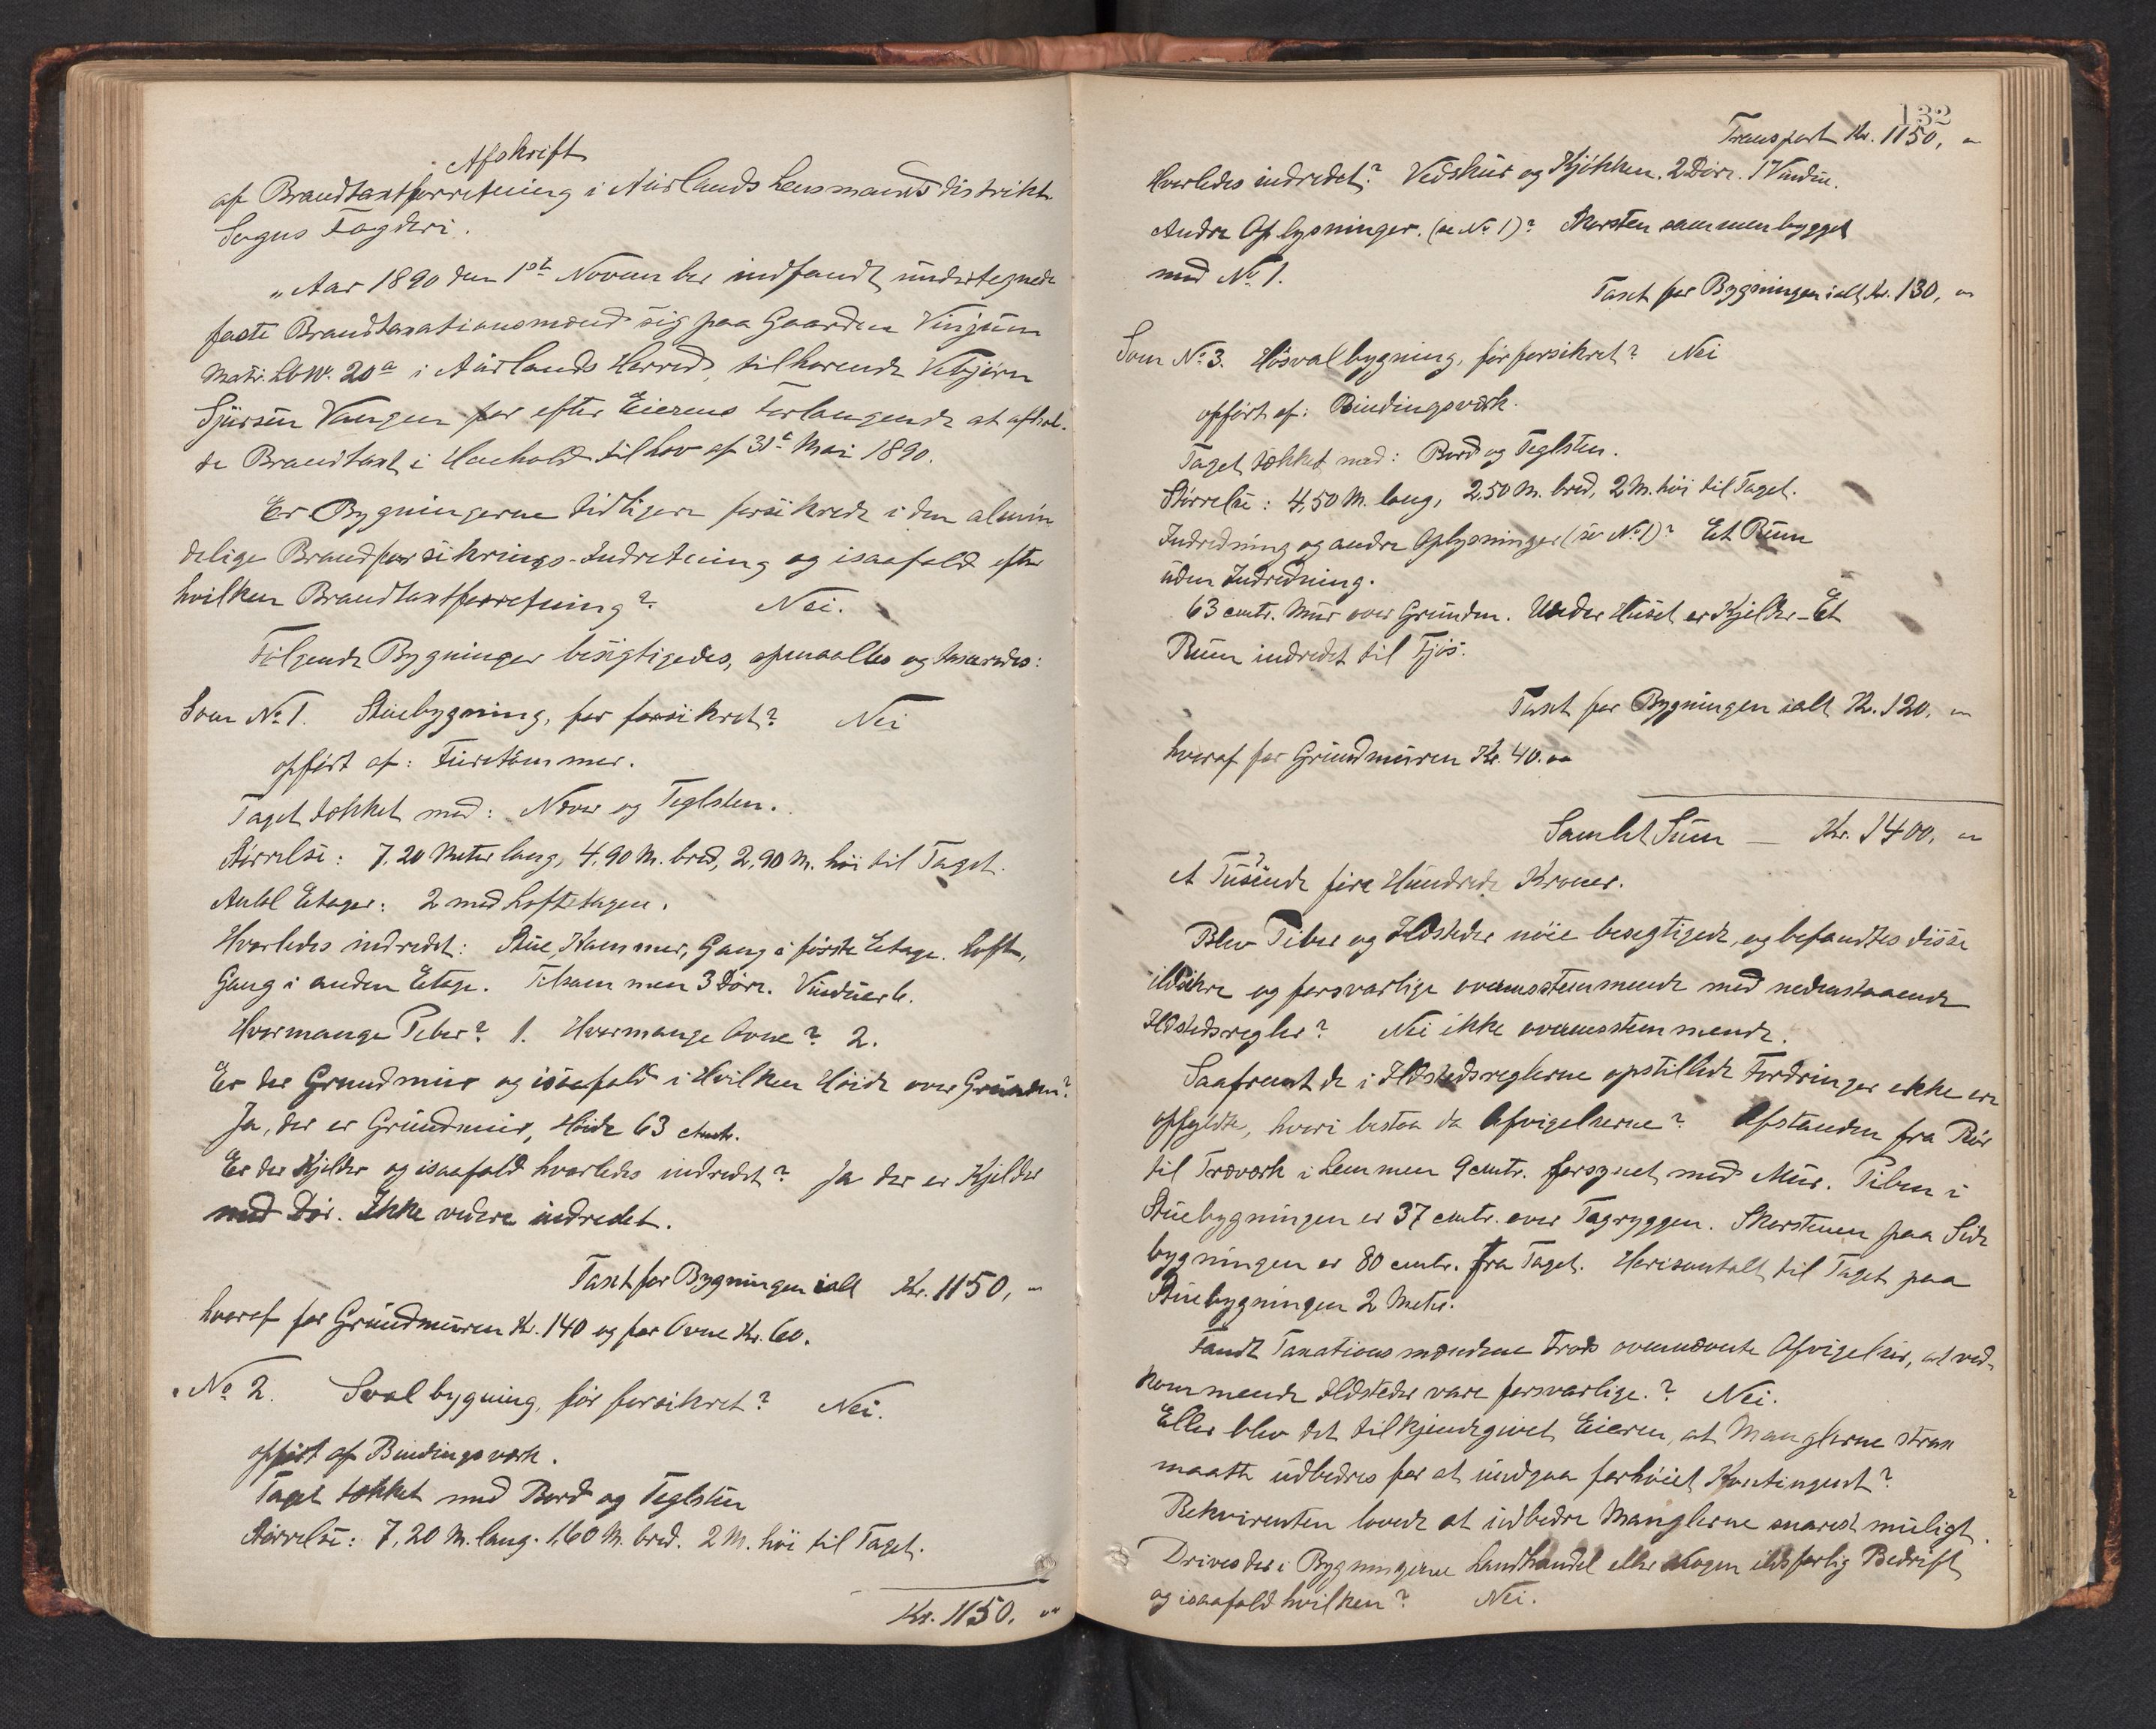 Afskrift
af Brandtaxtforretning i Aurlands Lensmandsdistrikt
Sogns Fogderi.
„Aar 1890 den 1ste November indfandt undertegnede
faste Brandtaxationsmænd sig paa Gaarden Vinjum
Matr. Lbn. 20a i Aurlands Herred, tilhørende Vebjørn
Sjursen Vangen for efter Eierens Forlangende at afhol-
de Brandtaxt i Henhold til Lov af 31te Mai 1890.
Er Bygningerne tidligere forsikrede i den almin
delige Brandforsikrings-Indretning og isaafald efter
hvilken Brandtaxtforretning? Nei.
Følgende Bygninger besigtigedes, opmaaltes og taxeredes:
Som No 1. Stuebygning, før forsikret? Nei
opført af: Furetømmer.
Taget tækket med: Næver og Teglsten.
Størrelse: 7,20 Meter lang, 4,90 M. bred, 2,90 M. høi til Taget.
Antal Etager: 2 med Loftetagen.
Hvorledes indredet: Stue, Kammer, Gang i første Etage. Loft,
Gang i anden Etage. Tilsammen 3 Døre. Vinduer 6.
Hvormange Piber? 1. Hvormange Ovne? 2.
Er der Grundmur og isaafald i Hvilken Høide over Grunden?
Ja, der er Grundmur, Høide 63 cmtr.
Er der Kjelder og isaafald hvorledes indredet? Ja der er Kjelder
med Dør. Ikke videre indredet.
Taxt for Bygningen ialt Kr. 1150, "
hvoraf for Grundmuren Kr. 140 og for Ovne Kr. 60.
" No 2. Svalbygning, før forsikret? Nei.
opført af Bindingsværk.
Taget tækket med Bord og Teglsten
Størrelse: 7,20 M. lang. 1,60 M. bred. 2 M. høi til Taget.
Kr. 1150. "
132
Transport Kr. 1150, "
Hvorledes indredet? Vedskur og Kjøkken. 2 Døre. 1 Vindue.
Andre Oplysninger. (se No 1)? Skorsten sammenbygget
med No 1.
Taxt for Bygningen ialt Kr. 130, "
Som No 3. Høsvalbygning, før forsikret? Nei
opført af: Bindingsværk.
Taget tækket med: Bord og Teglsten.
Størrelse: 4,50 M. lang, 2,50 M. bred, 2 M. høi til Taget.
Indredning og andre Oplysninger (se No 1)? Et Rum
uden Indredning.
63 cmtr. Mur over Grunden. Under Huset er Kjelder - Et
Rum indredet til Fjøs.
Taxt for Bygningen ialt Kr. 120. "
hvoraf for Grundmuren Kr. 40. "
Samlet Sum — Kr. 1400, "
et Tusinde fire Hundrede Kroner.
Blev Piber og Ildsteder nøie besegtigede, og befandtes disse
ildsikre og forsvarlige overensstemmende med nedenstaaende
Ildstedsregler? Nei ikke overensstemmende.
Saafremt de i Ildstedsreglerne opstillede Fordringer ekke ere
opfyldte, hvori bestaa da Afvigelserne? Afstanden fra Rør
til Træværk i Lemmen 9 cmtr. forsynet med Mur. Piben i
Stuebygningen er 37 cmtr. over Tagryggen. Skorstenen paa Side
bygningen er 80 cmtr. fra Taget. Horisontalt til Taget paa
Stuebygningen 2 Meter.
Fandt Taxationsmændene trods ovennævnte Afvigelser, at ved-
kommende Ildsteder vare forsvarlige.? Nei.
Eller blev det tilkjendegivet Eieren, at Manglerne strax
maatte udbedres for at undgaa forhøiet Kontingent?
Rekvirenten lovede at udbedre Manglerne snarest muligt.
Drives der i Bygningerne Landhandel eller nogen ildsfarlig Bedrift
og isaafald hvilken? Nei.